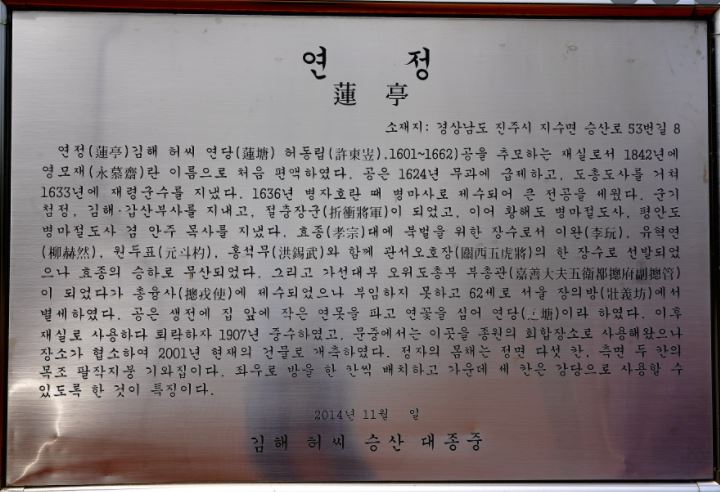 연 정
蓮 亭
소재지: 경상남도 진주시 지수면 승산로 53번길 8
연정(蓮亭)김해 허씨 연당(蓮塘) 허동립(許東岦,1601~1662)공을 추모하는 재실로서 1842년에
영모재(永慕齋)란 이름으로 처음 편액하였다. 공은 1624년 무과에 급제하고, 도총도사를 거쳐
1633년에 재령군수를 지냈다. 1636년 병자호란 때 병마사로 제수되어 큰 전공을 세웠다. 군기
첨정, 김해·갑산부사를 지내고, 절충장군(折衝將軍)이 되었고, 이어 황해도 병마절도사, 평안도
병마절도사 겸 안주 목사를 지냈다. 효종(孝宗)대에 북벌을 위한 장수로서 이완(李玩), 유혁연
(柳赫然), 원두표(元斗杓), 홍석무(洪錫武)와 함께 관서오호장(關西五虎將)의 한 장수로 선발되었
으나 효종의 승하로 무산되었다. 그리고 가선대부 오위도총부 부총관(嘉善大夫五衛都摠府副摠管)
이 되었다가 총융사(摠戎使)에 제수되었으나 부임하지 못하고 62세로 서울 장의방(壯義坊)에서
별세하였다. 공은 생전에 집 앞에 작은 연못을 파고 연꽃을 심어 연당( 塘)이라 하였다. 이후
재실로 사용하다 퇴락하자 1907년 중수하였고, 문중에서는 이곳을 종원의 회합장소로 사용해왔으나
장소가 협소하여 2001년 현재의 건물로 개축하였다. 정자의 몸채는 정면 다섯 칸, 측면 두 칸의
목조 팔작지붕 기와집이다. 좌우로 방을 한 칸씩 배치하고 가운데 세 칸은 강당으로 사용할 수
있도록 한 것이 특징이다.
2014년 11월 일
김해 허씨 승산 대종중